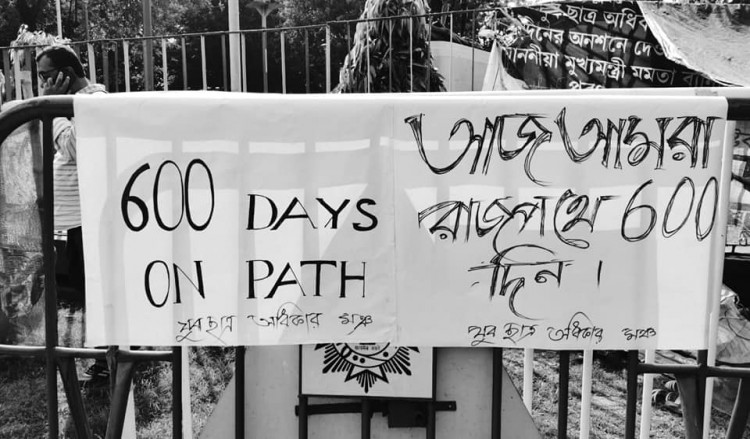 যুব ছাত্র অধি
দিনের অনশনে দে
মাননীয়া মুখ্যমন্ত্রী মমতা
600 DAYS
ON PATH
যুব ছাত্র অধিকার মঞ্চ
আজ আমরা
রাজপথে 600
দিন ।
যুব ছাত্র অধিকার মঞ্চ